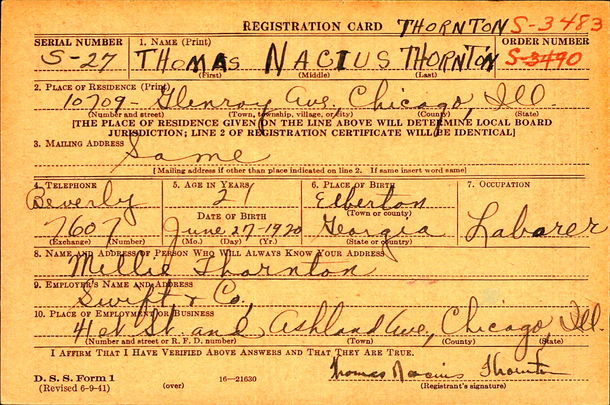 REGISTRATION CARD THORNTON S-3483
SERIAL NUMBER 1. NAME (Print) ORDER NUMBER
S-27 THOMAS NACIUS THORNTON S-3490
(First) (Middle) (Last)
2. PLACE OF RESIDENCE (Print)
10709- Glenroy Ave., Chicago, Ill.
(Number and street) (Town, township, village, or city) (County) (State)
[THE PLACE OF RESIDENCE GIVEN ON THE LINE ABOVE WILL DETERMINE LOCAL BOARD
JURISDICTION; LINE 2 OF REGISTRATION CERTIFICATE WILL BE IDENTICAL]
3. MAILING ADDRESS
Same
[Mailing address if other than place indicated on line 2. If same insert word same]
4. TELEPHONE 5. AGE IN YEARS 6. PLACE OF BIRTH 7. OCCUPATION
Beverly 21 Elberton
DATE OF BIRTH (Town or county)
7607 June 27-1920 Georgia Laborer
(Exchange) (Number) (Mo.) (Day) (Yr.) (State or country)
8. NAME AND ADDRESS OF PERSON WHO WILL ALWAYS KNOW YOUR ADDRESS
Millie Thornton
9. EMPLOYER'S NAME AND ADDRESS
Swift & Co.,
10. PLACE OF EMPLOYMENT OR BUSINESS
41st St. and Ashland Ave, Chicago, Ill.
(Number and street or R. F. D. number) (Town) (County) (State)
I AFFIRM THAT I HAVE VERIFIED ABOVE ANSWERS AND THAT THEY ARE TRUE.
Thomas Nacius Thornton
D. S. S. Form 1
(Revised 6-9-41) (over) 16-21630 (Registrant's signature)